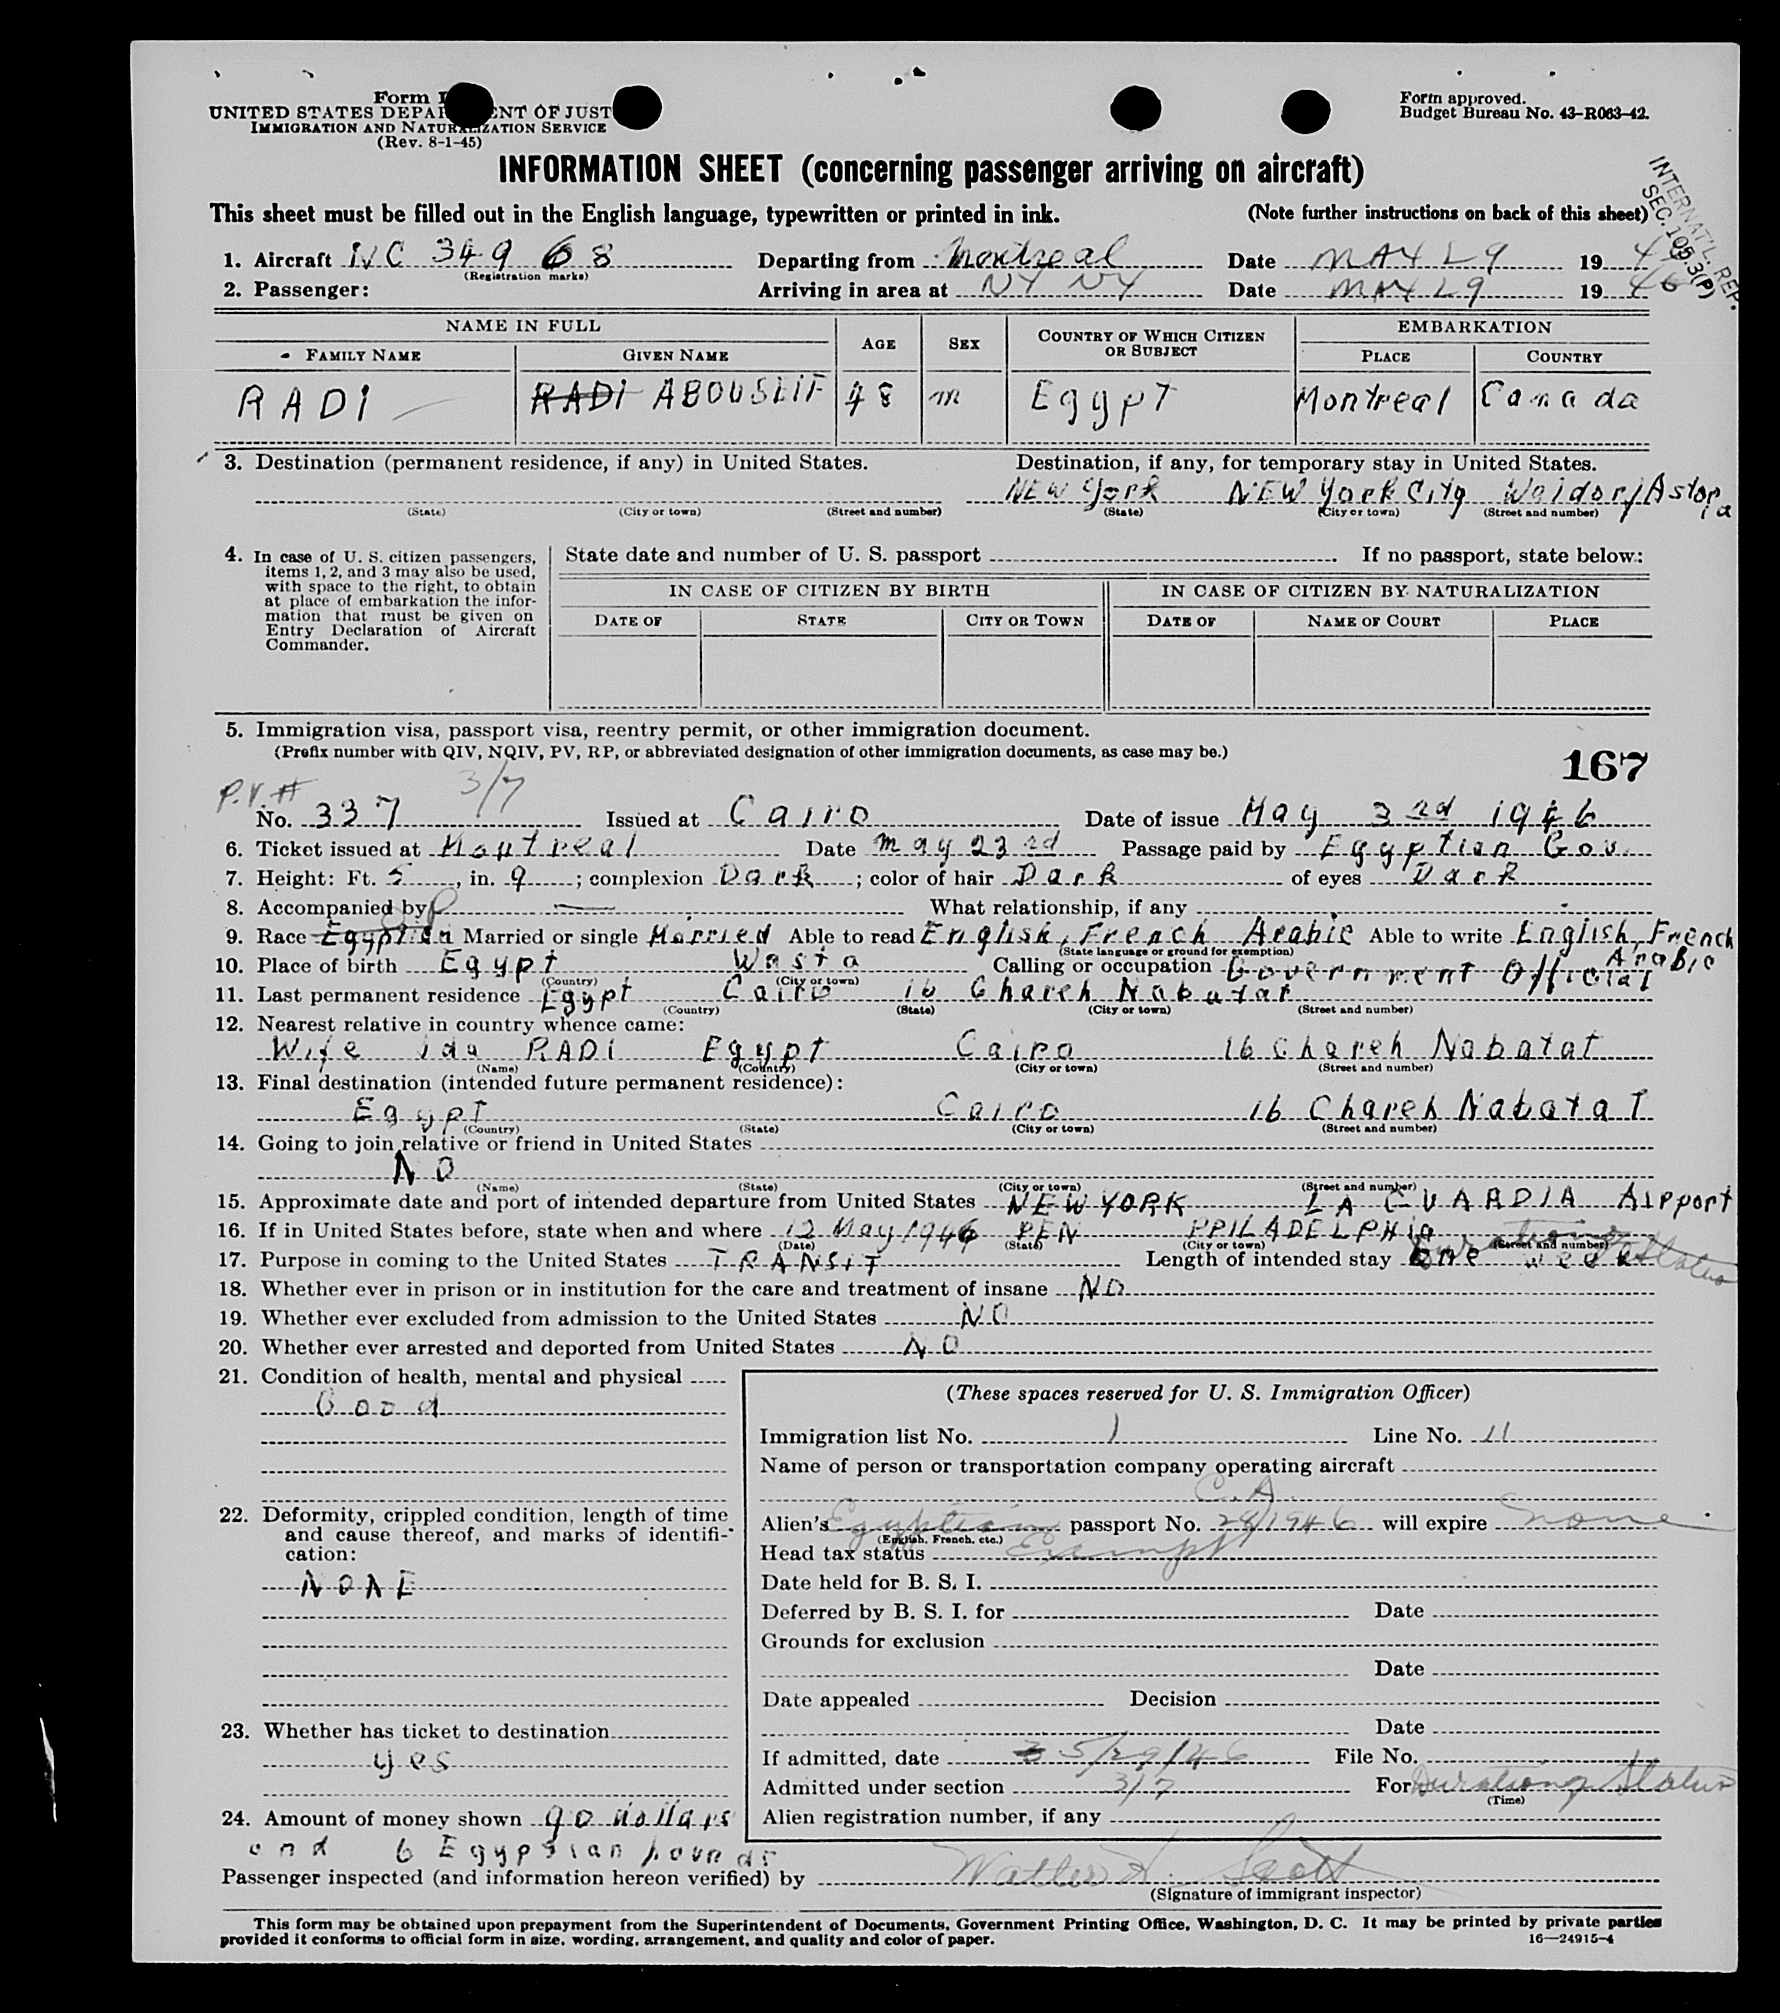 Form I
UNITED STATES DEPAR ENT OF JUST
IMMIGRATION AND NATURALIZATION SERVICE
(Rev. 8-1-45)
Form approved.
Budget Bureau No. 43-R063-42.
INFORMATION SHEET (concerning passenger arriving on aircraft)
INTERNAT'L. REP.
SEC. 105.3(P)
This sheet must be filled out in the English language, typewritten or printed in ink. (Note further instructions on back of this sheet)
1. Aircraft NC 34968 Departing from Montreal Date MAY 29 1946
(Registration marks)
2. Passenger: Arriving in area at NY NY Date MAY 29 1946
NAME IN FULL AGE SEX COUNTRY OF WHICH CITIZEN OR SUBJECT EMBARKATION
FAMILY NAME GIVEN NAME PLACE COUNTRY
RADI RADI ABOUSEIF 48 M Egypt Montreal Canada
3. Destination (permanent residence, if any) in United States. Destination, if any, for temporary stay in United States.
NEW York NEW York City Waldorf Astoria
(State) (City or town) (Street and number) (State) (City or town) (Street and number)
4. In case of U. S. citizen passengers, items 1, 2, and 3 may also be used, with space to the right, to obtain at place of embarkation the information that must be given on Entry Declaration of Aircraft Commander.
State date and number of U. S. passport If no passport, state below:
IN CASE OF CITIZEN BY BIRTH IN CASE OF CITIZEN BY NATURALIZATION
DATE OF STATE CITY OR TOWN DATE OF NAME OF COURT PLACE
5. Immigration visa, passport visa, reentry permit, or other immigration document.
(Prefix number with QIV, NQIV, PV, RP, or abbreviated designation of other immigration documents, as case may be.)
167
P.V. # 3/7
No. 337 Issued at Cairo Date of issue May 3rd 1946
6. Ticket issued at Montreal Date May 23rd Passage paid by Egyptian Gov.
7. Height: Ft. 5, in. 9; complexion Dark; color of hair Dark of eyes Dark
8. Accompanied by — What relationship, if any
9. Race Egyptian Married or single Married Able to read English, French Arabic Able to write English, French Arabic
(State language or ground for exemption)
10. Place of birth Egypt Wasta Calling or occupation Government Official
(Country) (City or town)
11. Last permanent residence Egypt Cairo 16 Chareh Nabatat
(Country) (State) (City or town) (Street and number)
12. Nearest relative in country whence came:
Wife ida RADI Egypt Cairo 16 Chareh Nabatat
(Name) (Country) (City or town) (Street and number)
13. Final destination (intended future permanent residence):
Egypt Cairo 16 Chareh Nabatat
(Country) (State) (City or town) (Street and number)
14. Going to join relative or friend in United States
NO
(Name) (State) (City or town) (Street and number)
15. Approximate date and port of intended departure from United States NEW YORK LA GUARDIA Airport
16. If in United States before, state when and where 12 May 1946 PEN PPILADELPHIA
(Date) (State) (City or town) (Street and number)
17. Purpose in coming to the United States TRANSIT Length of intended stay One week Duration of Status
18. Whether ever in prison or in institution for the care and treatment of insane NO
19. Whether ever excluded from admission to the United States NO
20. Whether ever arrested and deported from United States NO
21. Condition of health, mental and physical
Good
22. Deformity, crippled condition, length of time and cause thereof, and marks of identification:
NONE
23. Whether has ticket to destination
yes
24. Amount of money shown 90 dollars
and 6 Egypsian pounds
(These spaces reserved for U. S. Immigration Officer)
Immigration list No. 1 Line No. 11
Name of person or transportation company operating aircraft
C.A.
Alien's Egyptian passport No. 28/1946 will expire none
(English, French, etc.)
Head tax status Exempt
Date held for B. S. I.
Deferred by B. S. I. for Date
Grounds for exclusion
Date
Date appealed Decision
Date
If admitted, date 5/29/46 File No.
Admitted under section 3/7 For Duration of Status
(Time)
Alien registration number, if any
Passenger inspected (and information hereon verified) by Walter Scott
(Signature of immigrant inspector)
This form may be obtained upon prepayment from the Superintendent of Documents, Government Printing Office, Washington, D. C. It may be printed by private parties
provided it conforms to official form in size, wording, arrangement, and quality and color of paper. 16—24915-4